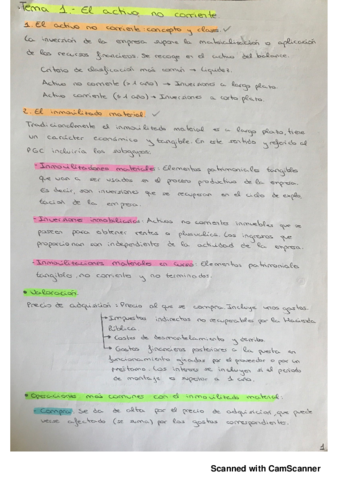 Tema 1 - El activo no corriente
1. El activo no corriente: concepto y clases ✓
La inversión de la empresa supone la materialización o aplicación
de los recursos financieros. Se recoge en el activo del balance.
Criterio de clasificación más común → Liquidez.
Activo no corriente (> 1 año) → Inversiones a largo plazo
Activo corriente (< 1 año) → Inversiones a corto plazo.
2. El inmovilizado material. ✓
Tradicionalmente el inmovilizado material es a largo plazo, tiene
un carácter económico y tangible. En este sentido y referido al
PGC incluiría los subgrupos:
• Inmovilizaciones materiales: Elementos patrimoniales tangibles
que van a ser usados en el proceso productivo de la empresa.
Es decir, son inversiones que se recuperan en el ciclo de explo
tación de la empresa.
• Inversiones inmobiliarias: Activos no corrientes inmuebles que se
poseen para obtener rentas o plusvalías. Los ingresos que
proporcionan son independientes de la actividad de la empresa.
• Inmovilizaciones materiales en curso: Elementos patrimoniales
tangibles no corriente y no terminados.
• Valoración
Precio de adquisición: Precio al que se compra. Incluye unos gastos:
→ Impuestos indirectos no recuperables por la Hacienda
Pública.
→ Costes de desmantelamiento y
→ Gastos financieros posteriores a la puesta en
funcionamiento por el proveedor o por un
préstamo. Los intereses se incluyen si el periodo
de montaje es superior a 1 año.
• Operaciones más comunes con el inmovilizado material:
- Compra: Se da de alta por el precio de adquisición, que puede
verse afectado (se suma) por los gastos correspondientes.
1
Scanned with CamScanner